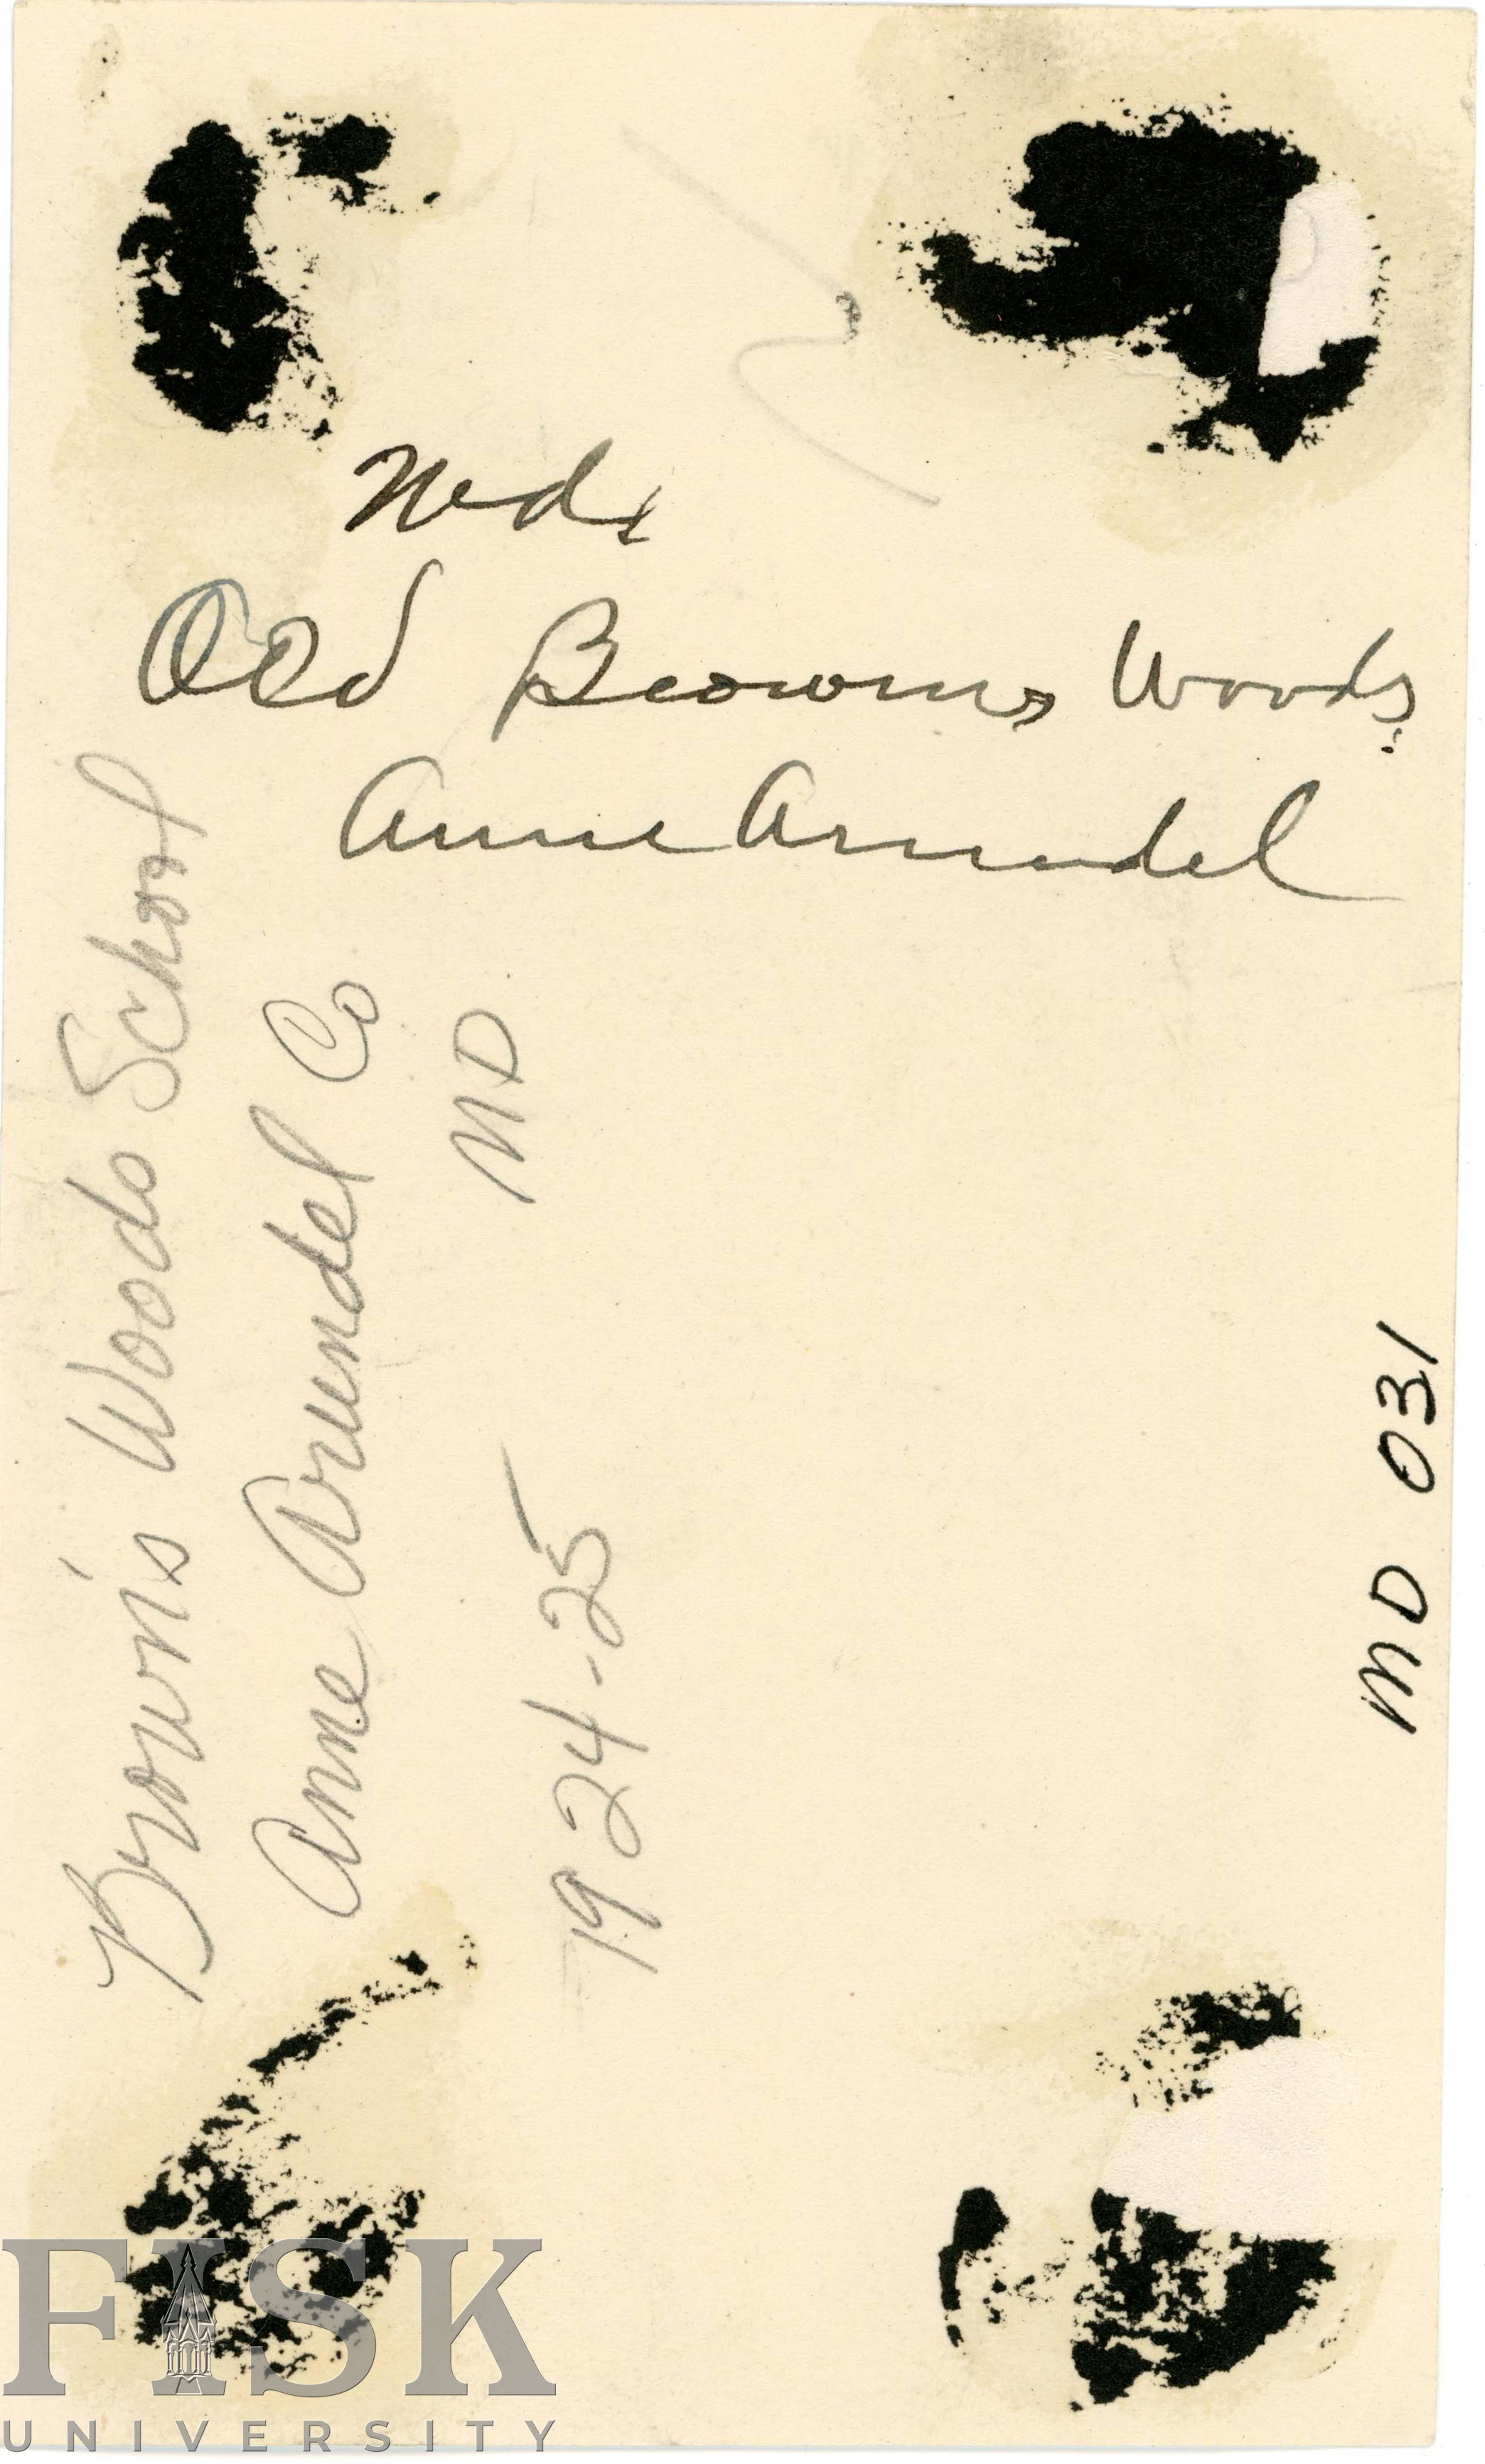 Md.
Old Browns Woods
Anne Arundel
Brown's Woods School
Anne Arundel Co
MD
1924-25
MD 031
FISK
UNIVERSITY